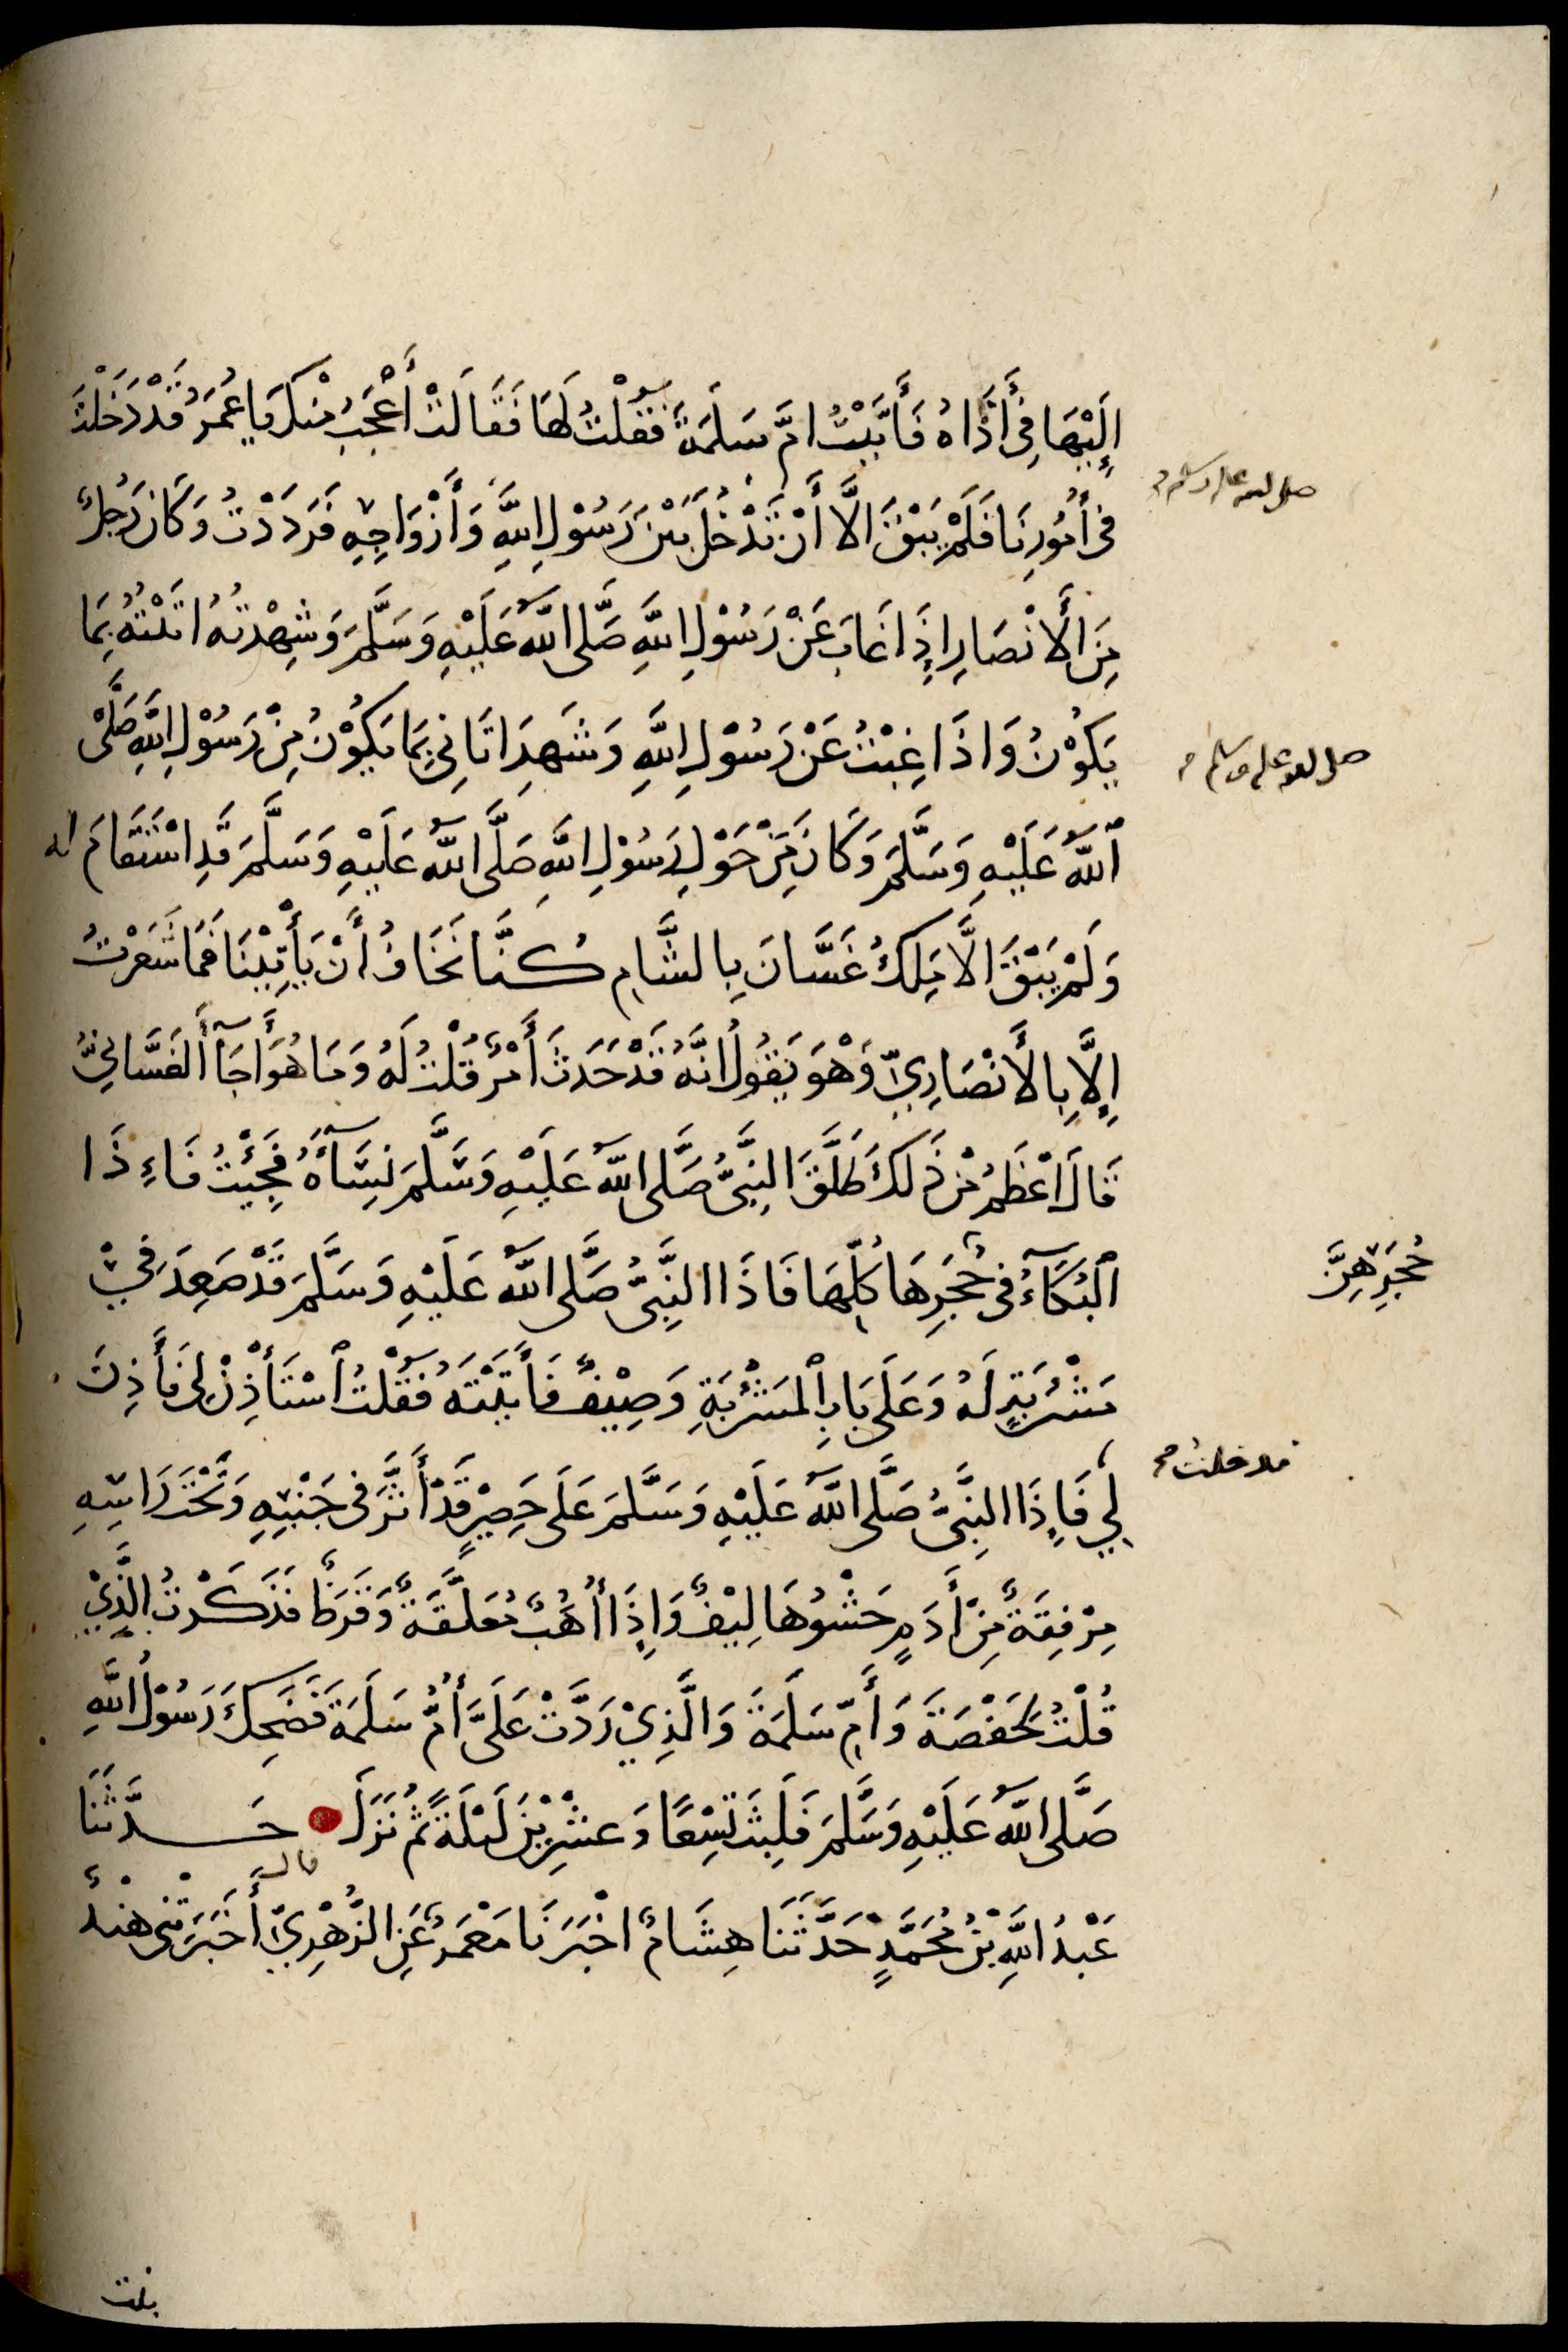 إِلَيْهَا فِي أَذَاهُ فَأَتَيْتُ امَّ سَلَمَةَ فَقُلْتُ لَهَا فَقَالَتْ أَعْجَبُ مِنْكَ يَا عُمَرُ قَدْ دَخَلْتَ
صلى الله عليه وسلم
فِي أُمُورِنَا فَلَمْ يَبْقَ الَّا أَنْ تَدْخُلَ بَيْنَ رَسُوْلِ اللَّهِ وَأَزْوَاجِهِ فَرَدَدْتُ وَكَانَ رَجُلٌ
مِنَ الْأَنْصَارِ إِذَا غَابَ عَنْ رَسُوْلِ اللَّهِ صَلَّى اللَّهُ عَلَيْهِ وَسَلَّمَ وَشَهِدْتُهُ اتَيْتُهُ بِمَا
يَكُوْنُ وَاذَا غِبْتُ عَنْ رَسُوْلِ اللَّهِ وَشَهِدَ اتَانِي بِمَا يَكُوْنُ مِنْ رَسُوْلِ اللَّهِ صَلَّى
صلى الله عليه وسلم
ٱللَّهُ عَلَيْهِ وَسَلَّمَ وَكَانَ مَنْ حَوْلَ رَسُوْلِ اللَّهِ صَلَّى اللَّهُ عَلَيْهِ وَسَلَّمَ قَدِ اسْتَقَامَ له
وَلَمْ يَبْقَ الَّا مَلِكُ غَسَّانَ بِالشَّامِ كُنَّا نَخَافُ أَنْ يَأْتِيْنَا فَمَا شَعَرْتُ
إِلَّا بِالْأَنْصَارِيِّ وَهْوَ يَقُولُ انَّهُ قَدْ حَدَثَ أَمْرٌ قُلْتُ لَهُ وَمَا هُوَ أَجَآءَ الغَسَّانِيُّ
قَالَ اعْظَمُ مِنْ ذَلِكَ طَلَّقَ النَّبِيُّ صَلَّى اللَّهُ عَلَيْهِ وَسَلَّمَ نِسَآءَهُ فَجِئْتُ فَإِذَا
ٱلبُكَآءُ فِي حُجَرِهَا كُلِّهَا فَاذَا النَّبِيُّ صَلَّى اللَّهُ عَلَيْهِ وَسَلَّمَ قَدْ صَعِدَ فِيْ
حُجَرِهِنَّ
مَشْرُبَةٍ لَهُ وَعَلَى بَابِ ٱلمَشْرُبَةِ وَصِيْفٌ فَأَتَيْتُهُ فَقُلْتُ ٱسْتَأْذِنْ لِي فَأَذِنَ
فدخلت
لِي فَإِذَا النَّبِيُّ صَلَّى اللَّهُ عَلَيْهِ وَسَلَّمَ عَلَى حَصِيْرٍ قَدْ أَثَّرَ فِي جَنْبِهِ وَتَحْتَ رَاسِهِ
مِرْفَقَةٌ مِنْ أَدَمٍ حَشْوُهَا لِيْفٌ وَإِذَا أُهُبٌ مُعَلَّقَةٌ وَقَرَظٌ فَذَكَرْتُ الَّذِيْ
قُلْتُ لِحَفْصَةَ وَأُمِّ سَلَمَةَ وَالَّذِيْ رَدَّتْ عَلَيَّ أُمُّ سَلَمَةَ فَضَحِكَ رَسُوْلُ اللَّهِ
صَلَّى اللَّهُ عَلَيْهِ وَسَلَّمَ فَلَبِثَ تِسْعًا وَعِشْرِيْنَ لَيْلَةً ثُمَّ نَزَلَ حَدَّثَنَا
قال
عَبْدُ اللَّهِ بْنُ مُحَمَّدٍ حَدَّثَنَا هِشَامٌ اخْبَرَنَا مَعْمَرٌ عَنِ الزُّهْرِيِّ أَخْبَرَتْنِي هِنْدُ
بنت